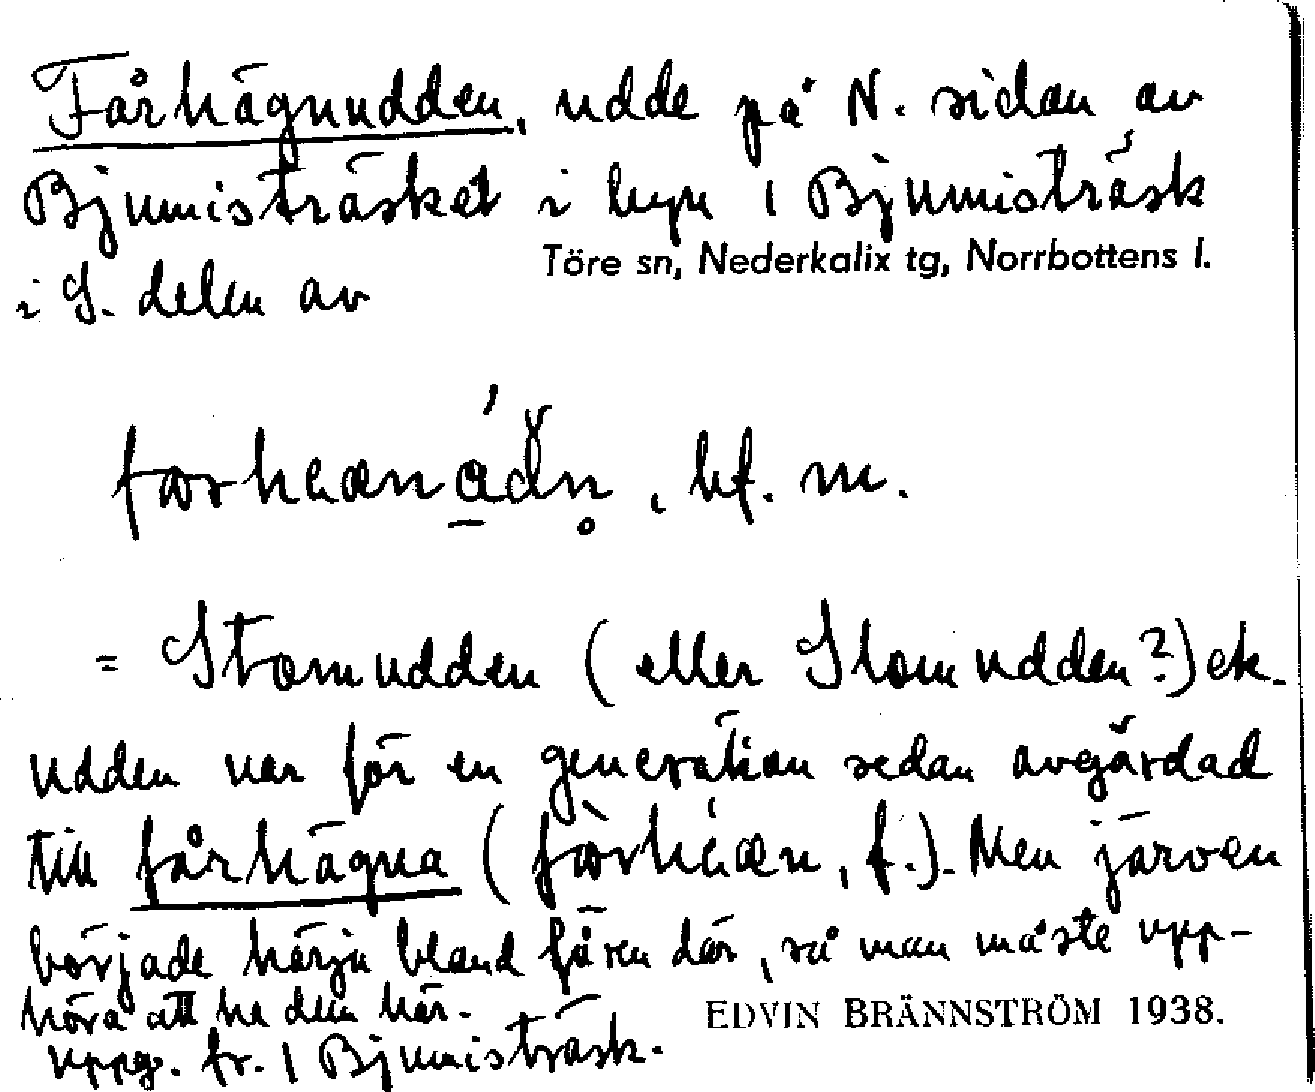 Fårhägnudden, udde på N. sidan av
Bjumisträsket i byn 1 Bjumisträsk
Töre sn, Nederkalix tg, Norrbottens l.
i S. delen av
, bf. m.
= Stomudden ( eller Slomudden?) ek.
udden var för en generation sedan avgärdad
till fårhägna ( , f.). Men järven
började härja bland fåren där, så man måste upp-
höra att ha dem här.
EDVIN BRÄNNSTRÖM 1938.
uppg. fr. 1 Bjumisträsk.